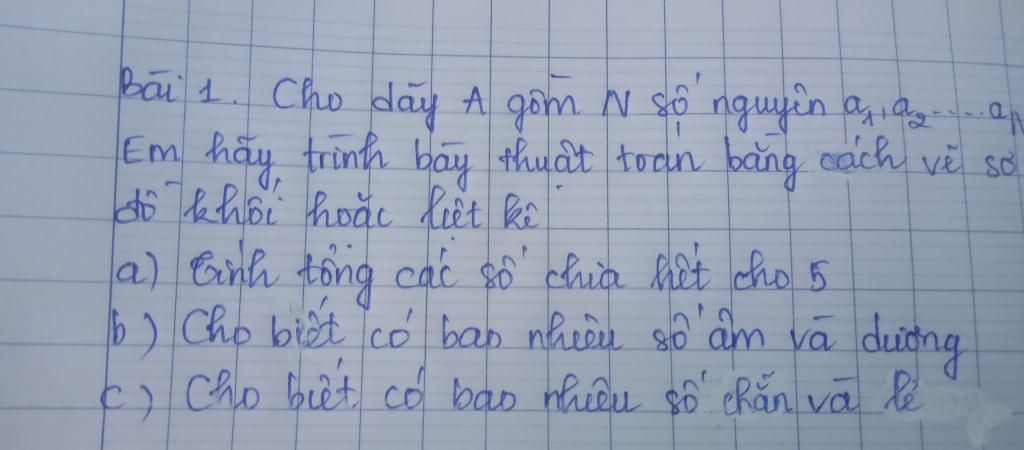 Bài 1. Cho dãy A gồm N số nguyên a1, a2.....an
Em hãy trình bày thuật toán bằng cách vẽ sơ
đồ khối hoặc liệt kê
a) tính tổng các số chia hết cho 5
b) Cho biết có bao nhiêu số âm và dương
c) Cho biết có bao nhiêu số chẵn và lẻ